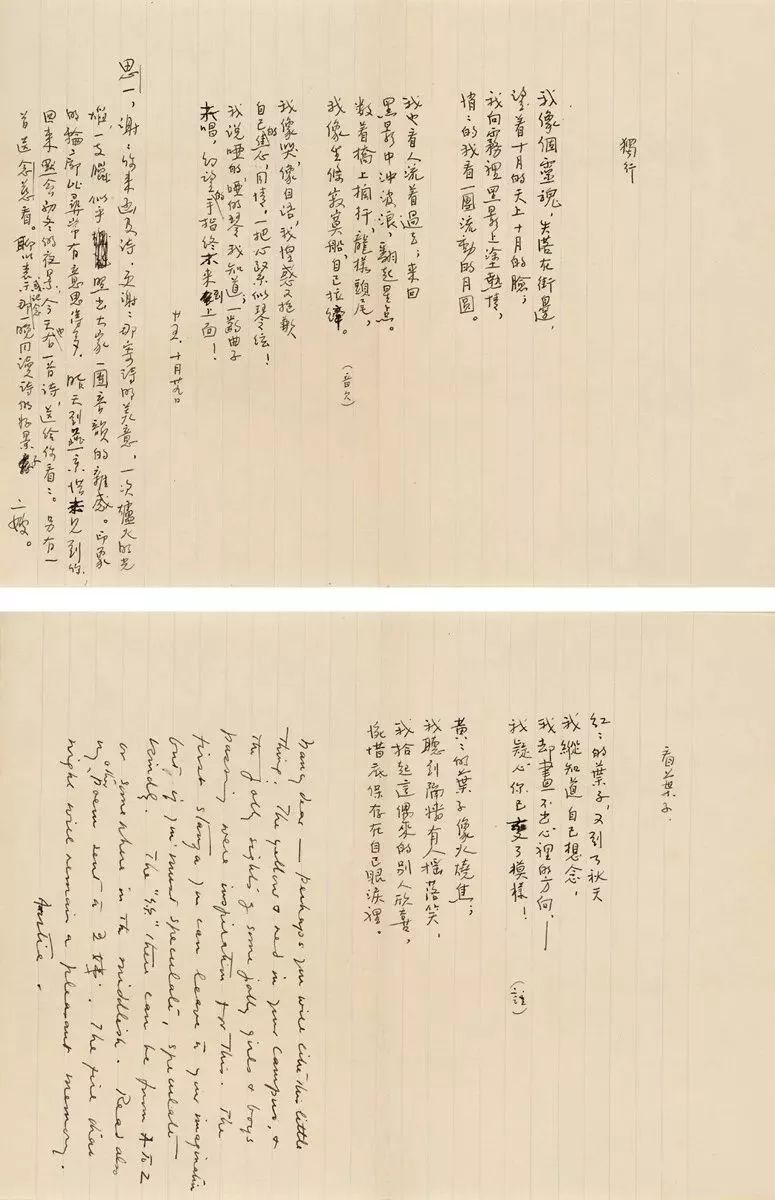 獨行
我像個靈魂，失落在街邊，
望着十月的天上十月的臉；
我向霧裡黑影上塗熱情，
悄悄的我看一團流動的月圓。
我也看人流着過去；來回
黑影中沖波浪，翻起星点。
数着橋上栏杆，龍樣頭尾，
我像坐條寂寞船，自己拉縴。
（音欠）
我像哭，像自語，我惶惑又抱歉
自己的焦心，同情，一把心緊似琴絃！
我说哑的，哑的琴我知道；一齣曲子
未唱，幻望的手指终未來到上面！
廿五，十月廿九日
思一，謝：你来函及诗，更謝：那寄诗的美意，一次爐火的光
一支臘，似乎照出大家一團音韻的雜感。印象
的輪廓比尋常有意思得多。昨天到燕京惜未見到你，
回来 初冬的夜景，今天也有一首诗，送给你看：。另有一
首送念慈看。聊以表示或纪念那一晚同读诗的好景
二嫂。
看葉子
紅：的葉子，又到了秋天
我縱知道自己想念，
我却畫不出心裡的方向，——
我疑心你已變了模樣！
（註）
黃：的葉子像火燒焦；
我聽到隔墙有人摇落笑，
我拾起這偶來的别人欣喜，
惋惜底保存在自己眼淚裡。
Nancy dear — perhaps you will like this little
thing. The yellow & red in your campus, &
the jolly sights of some jolly girls & boys
passing were inspiration for this. The
first stanza you can leave to your imagination
but if you must speculate, speculate
kindly. The "你" there can be from A to Z
or somewhere in the middlish. Read also
my other poem sent to 王 The fire
night will remain a pleasant memory.